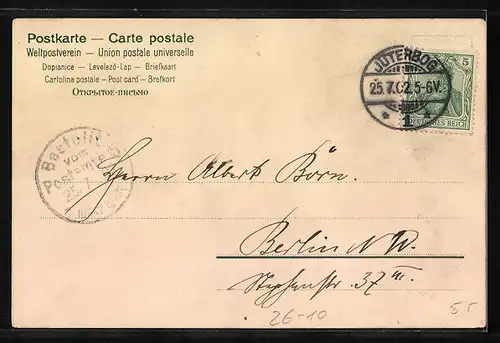 Postkarte — Carte postale
Weltpostverein – Union postale universelle
Dopisnice – Levelező-Lap – Briefkaart
Cartolina postale – Post card – Brefkort
Открытое-письмо
JÜTERBOG
25.7.02.5-6V.
5
REICH
Bestellt
vom
Postamte
25. 7
Herrn Albert Börn.
Berlin N.W.
Stephanstr. 37 III.
26-10